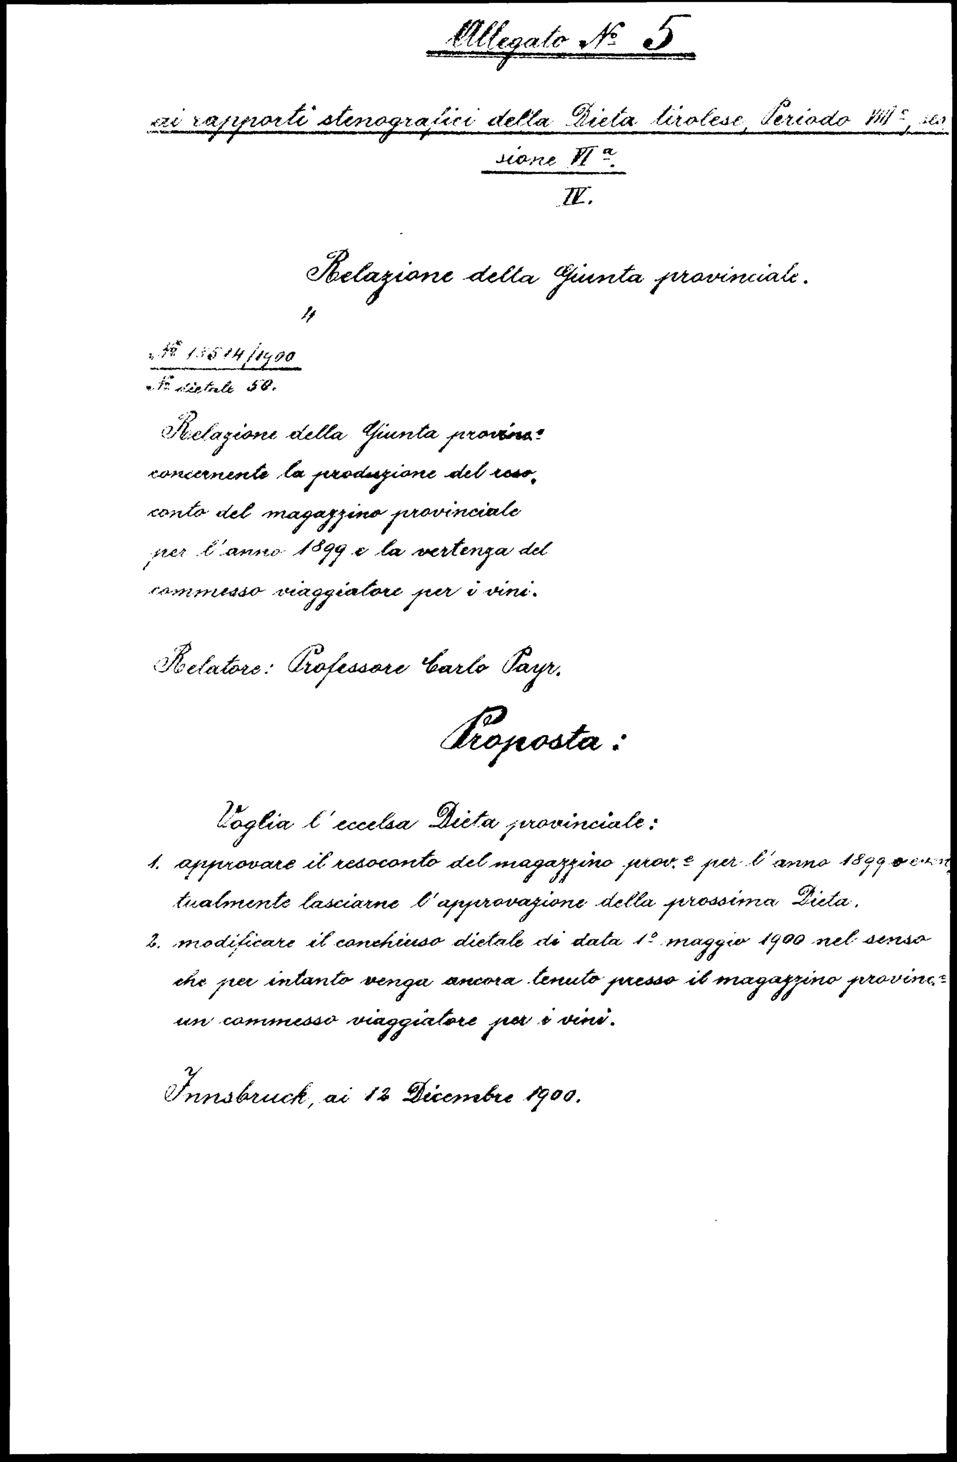 Allegato № 5
ai rapporti stenografici della Dieta tirolese, Periodo VIII°, ses
sione VIª.
IV.
Relazione della Giunta provinciale.
4
№ 13514/1900
№ dietale 50.
Relazione della Giunta provinc.e
concernente la produzione del reso,
conto del magazzino provinciale
per l'anno 1899 e la vertenza del
commesso viaggiatore per i vini.
Relatore: Professore Carlo Payr.
Proposta:
Voglia l'eccelsa Dieta provinciale:
1. approvare il resoconto del magazzino prov.e per l'anno 1899 o even
tualmente lasciarne l'approvazione della prossima Dieta.
2. modificare il conchiuso dietale di data 1° maggio 1900 nel senso
che per intanto venga ancora tenuto presso il magazzino provinc.e
un commesso viaggiatore per i vini.
Innsbruck, ai 12 Dicembre 1900.